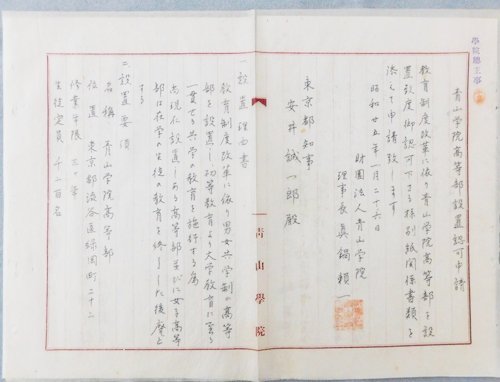 學院總主事
青山学院高等部設置認可申請
教育制度改革に依り青山学院高等部を設
置致度御認可下さる様別紙関係書類を
添えて申請致します
昭和廿五年一月二十六日
財團法人青山学院
理事長 眞鍋頼一
東京都知事
安井誠一郎殿
一、設置理由書
教育制度改革に依り男女共学制の高等
部を設置し初等教育より大学教育に至る
一貫せる共学の教育を施行する為
尚現に設置しある高等部並びに女子高等
部は在学の生徒の教育を終了した後廃止
する
二、設置要項
名称 青山学院高等部
位置 東京都渋谷区緑岡町二十二
修業年限 三ヶ年
生徒定員 千二百名
青山學院